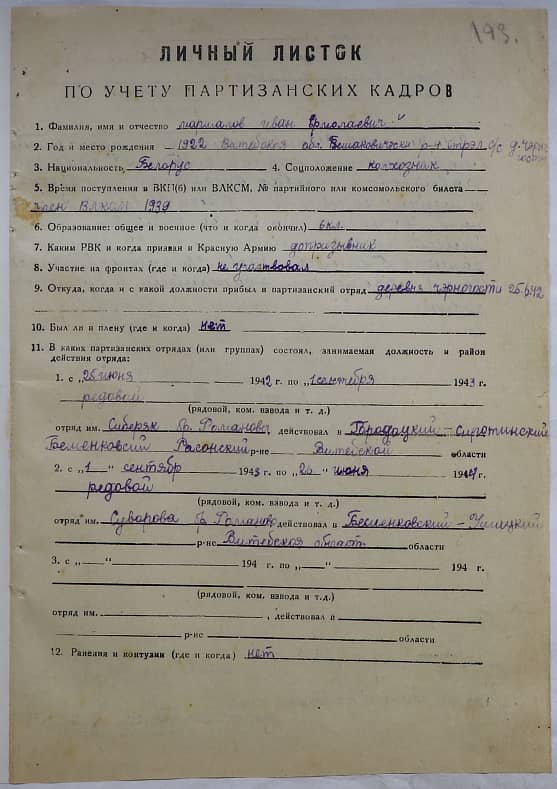 193.
ЛИЧНЫЙ ЛИСТОК
ПО УЧЕТУ ПАРТИЗАНСКИХ КАДРОВ
1. Фамилия, имя и отчество маршалов иван Ермолаевич
2. Год и место рождения – 1922 Витебская обл. Бешаковически р-н с/с д.
3. Национальность Белорус 4. Соцположение колхозник
5. Время поступления в ВКП(б) или ВЛКСМ, № партийного или комсомольского билета
член ВЛКСМ 1939
6. Образование: общее и военное (что и когда окончил) 6 кл.
7. Каким РВК и когда призван в Красную Армию допризывник
8. Участие на фронтах (где и когда) не участвовал
9. Откуда, когда и с какой должности прибыл в партизанский отряд деревня
10. Был ли в плену (где и когда) нет
11. В каких партизанских отрядах (или группах) состоял, занимаемая должность и район
действия отряда:
1. с „26 июня 1942 г. по „1 сентября 1943 г.
редовой
(рядовой, ком. взвода и т. д.)
отряд им. Сиберяк бр. Романова, действовал в Городоцкий – Сиротинский
Бесменковский Расонский р-не Витебской области
2. с „1" сентябр 1943 г. по „26" июня 1944 г.
редовой
(рядовой, ком. взвода и т. д.)
отряд им. Суварова бр Романово действовал в Бесменковский – Ушицкий
р-не Витебская область области
3. с „—" 194 г. по „—" 194 г.
(рядовой, ком. взвода и т. д.)
отряд им. , действовал в
р-не области
12. Ранения и контузии (где и когда) нет